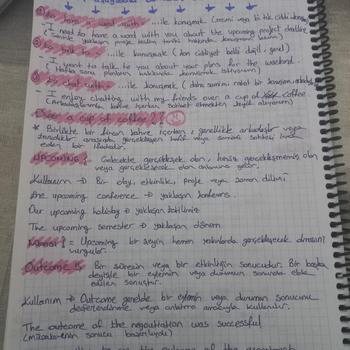 to have a word with ...ile konuşmak (resmi veya bi tık ciddi
- I need to have a word with you about the upcoming project deadline
(Seninle yaklaşan proje teslim tarihi hakkında konuşmam lazım)
to talk to ...ile konuşmak (ton ciddiyet belli değil, genel)
I want to talk to you about your plans for the weekend
(Hafta sonu planların hakkında konuşmak istiyorum)
to chat with ...ile konuşmak (daha samimi, rahat bi konuşma
- I enjoy chatting with my friends over a cup of coffee
(Arkadaşlarımla kahve içerken sohbet etmekten keyif alıyorum)
Over a cup of coffee
* Birlikte bir fincan kahve içerken, genellikle arkadaşlar veya
arasında gerçekleşen hafif veya samimi sohbeti
eden bir ifadedir.
Upcoming: Gelecekte gerçekleşecek olan, henüz gerçekleşmemiş olan
veya gerçekleşecek olan anlamına gelir.
Kullanım → Bir olay, etkinlik, proje veya zaman dilimi
The upcoming conference → yaklaşan konferans
Our upcoming holiday → yaklaşan tatilimiz
The upcoming semester → yaklaşan dönem
= Upcoming bir şeyin hemen yakınlarda gerçekleşecek olmasını
vurgular.
Outcome: Bir sürecin veya bir etkinliğin sonucudur. Bir başka
deyişle bir eylemin veya durumun sonunda elde
edilen sonuçtur.
Kullanım → Outcome genelde bir eylemin veya durumun sonucunu
değerlendirme veya anlatma amacıyla kullanılır.
The outcome of the negotiation was successful
(müzakerenin sonucu başarılıydı)